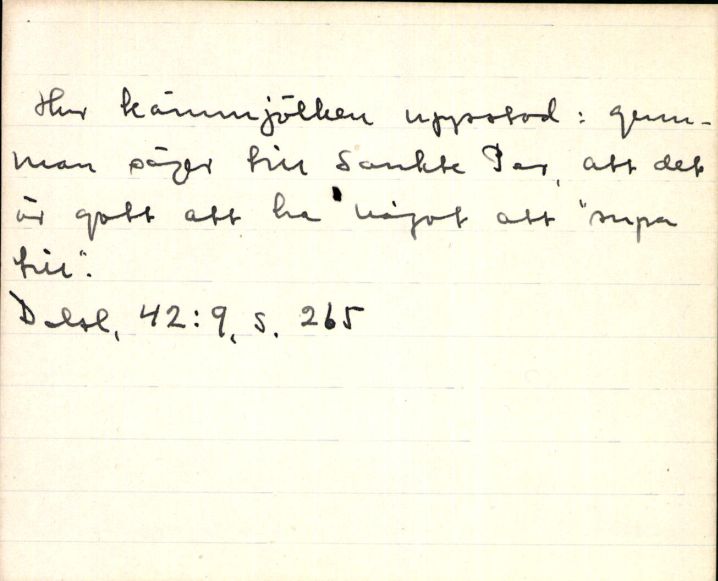 Hur kärnmjölken uppstod: gum-
man säger till Sankte Per, att det
är gott att ha något att "supa
till".
Dalsl, 42:9, s. 265